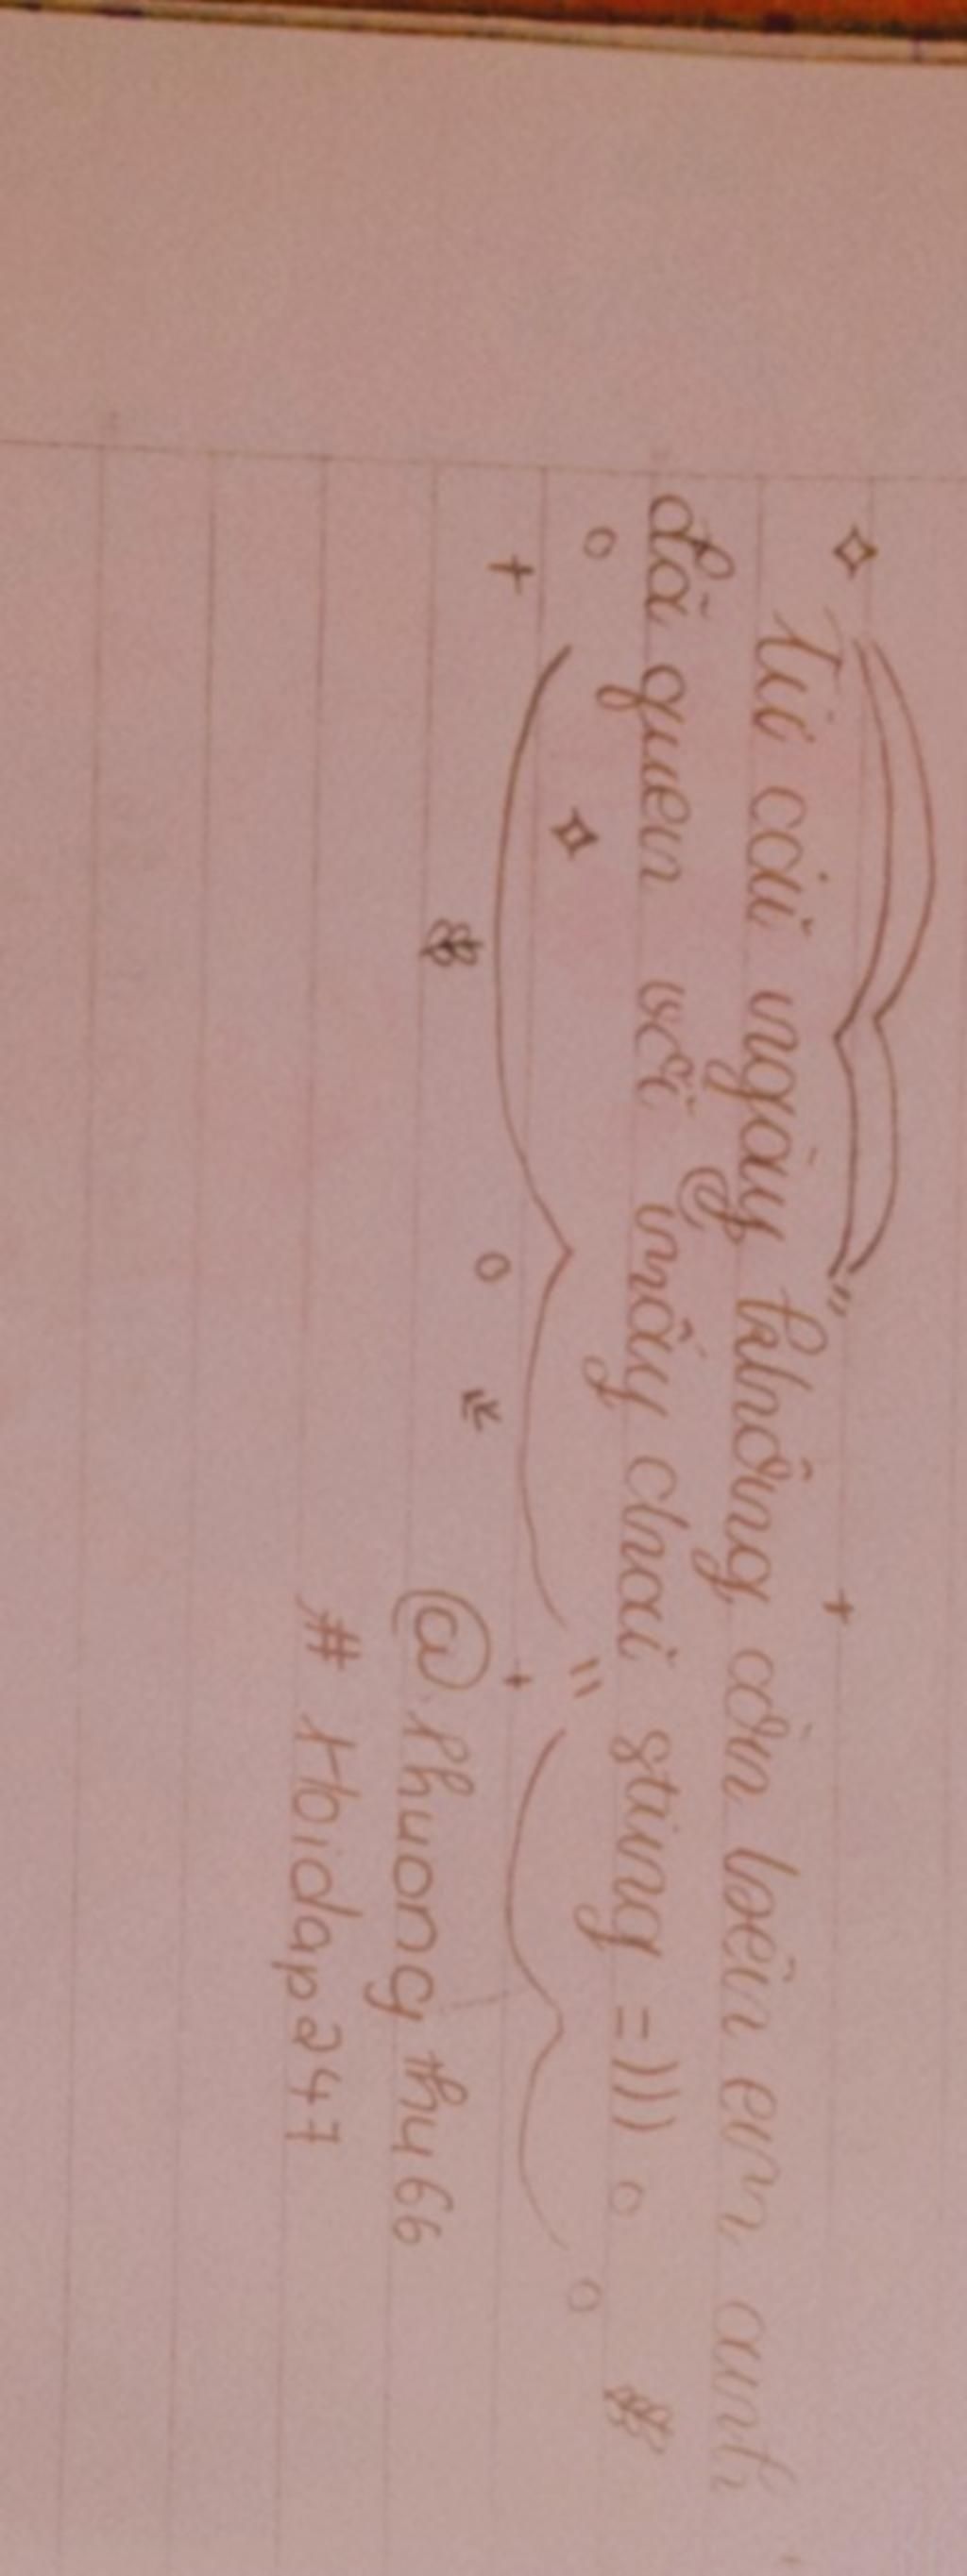 Từ cái ngày không còn bên em, anh
đã quen với mấy chai sting =)))
@Phuong thy66
# Hoidap247